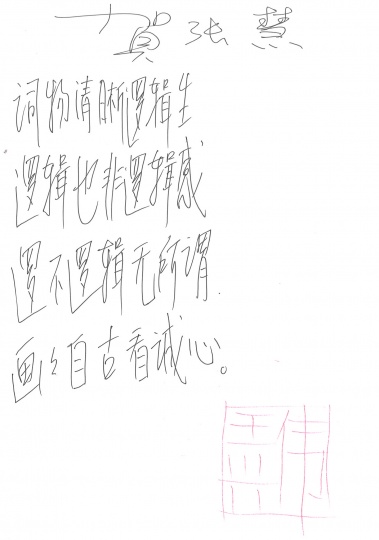 贺张慧
词物清晰逻辑生
逻辑也非逻辑感
逻不逻辑无所谓.
画々自古看诚心。